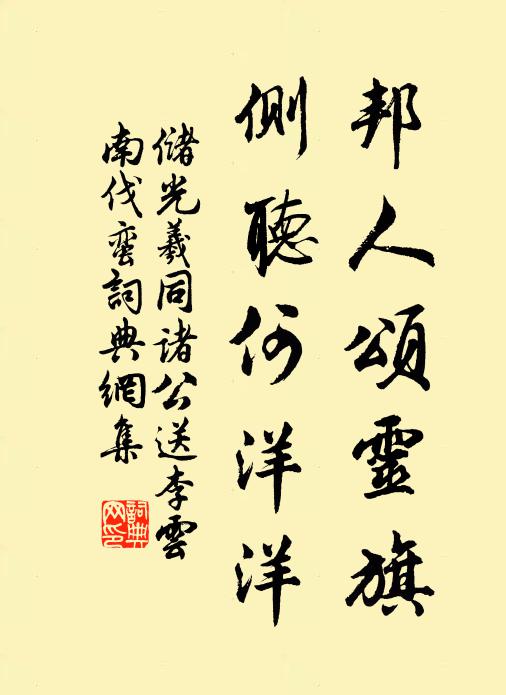 邦人頌靈旗
側聽何洋洋
儲光羲同諸公送李雲
南伐蠻詞典網集
詞典網印